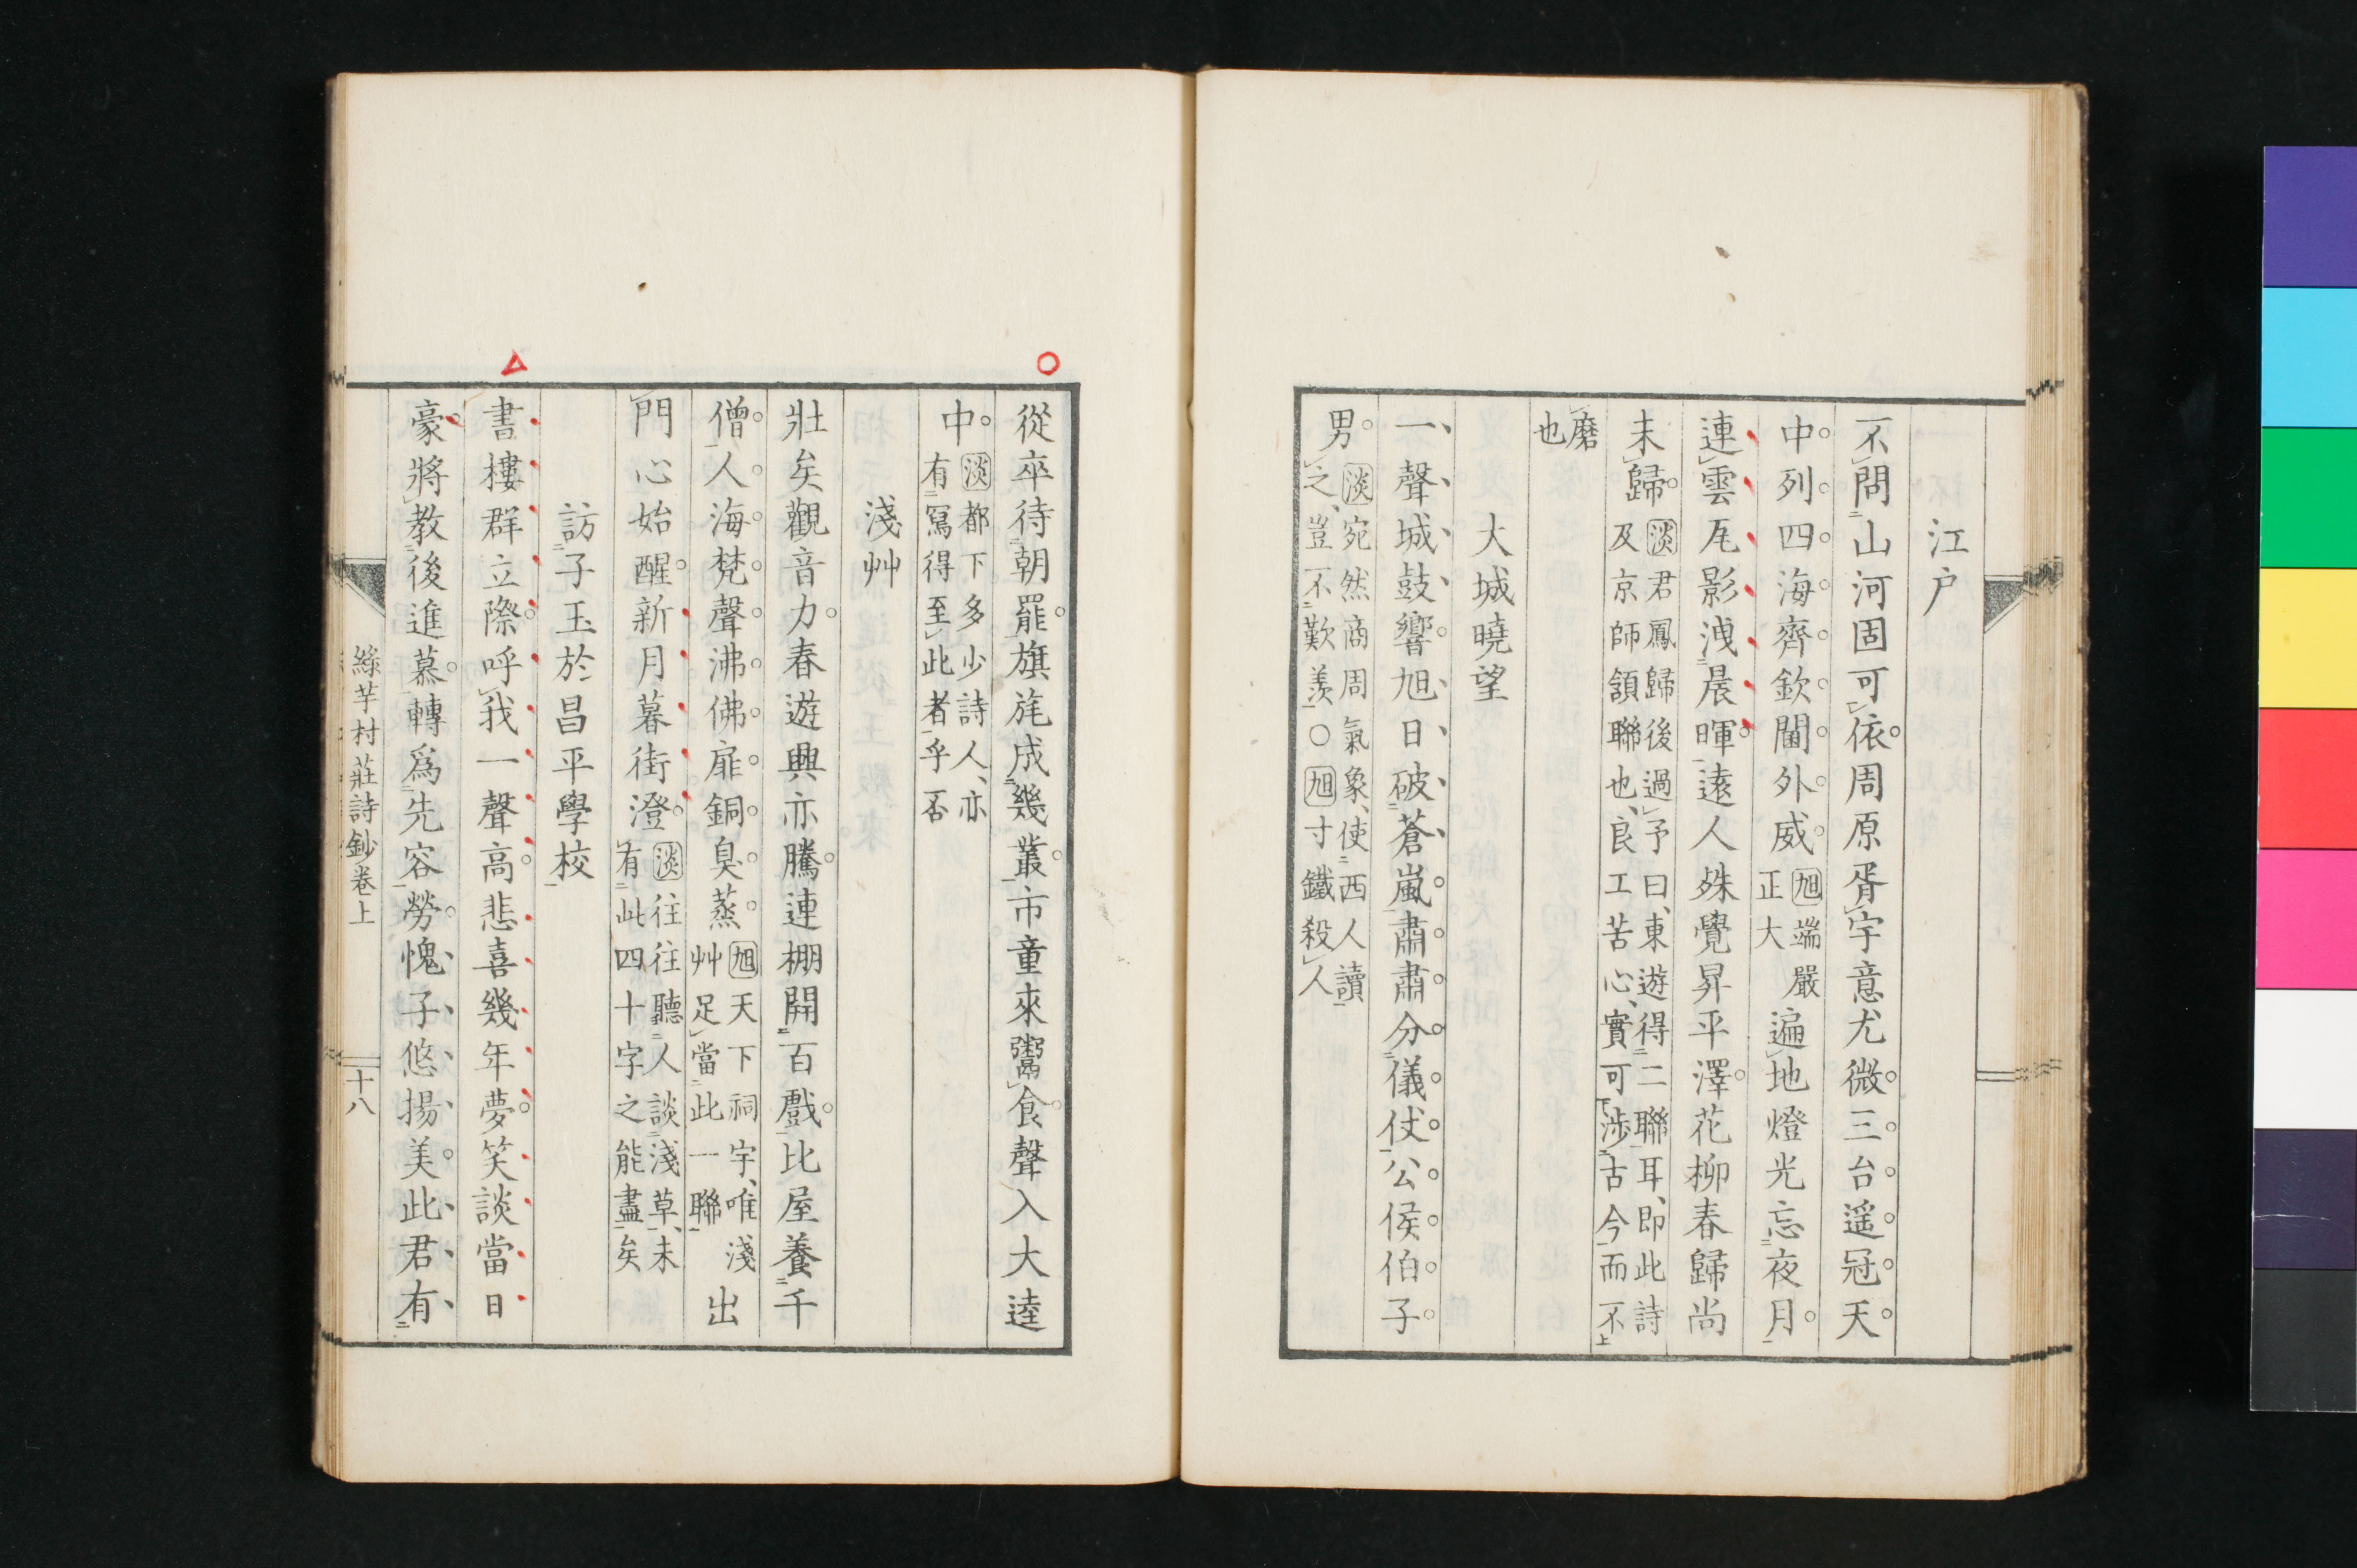 江戸
不問山河固可依周原胥宇意尤微三台遥冠天
中列四海齊欽閫外威
旭端嚴
正大
遍地燈光忘夜月
連雲瓦影洩晨暉遠人殊覺昇平澤花柳春歸尚
未歸
淡君鳳歸後過予曰、東遊得二聯耳、即此詩
及京師頷聯也、良工苦心、實可渉古今而不
磨
也
大城曉望
一聲城鼓響旭日破蒼嵐肅肅分儀仗公侯伯子
男
淡宛然商周氣象、使西人讀
之、豈不歎羨〇旭寸鐵殺人
從卒待朝罷旗旄成幾叢市童來鬻食聲入大逵
中
淡都下多少詩人、亦
有寫得至此者乎否
淺艸
壯矣觀音力春遊興亦騰連棚開百戲比屋養千
僧人海梵聲沸佛扉銅臭蒸
旭天下祠宇、唯淺
艸足當此一聯
出
門心始醒新月暮街澄
淡往往聽人談淺草、未
有此四十字之能盡矣
訪子玉於昌平學校
書樓群立際呼我一聲高悲喜幾年夢笑談當日
豪將教後進慕轉爲先容勞愧子悠揚美此君有
緑芋村莊詩鈔卷上
十八